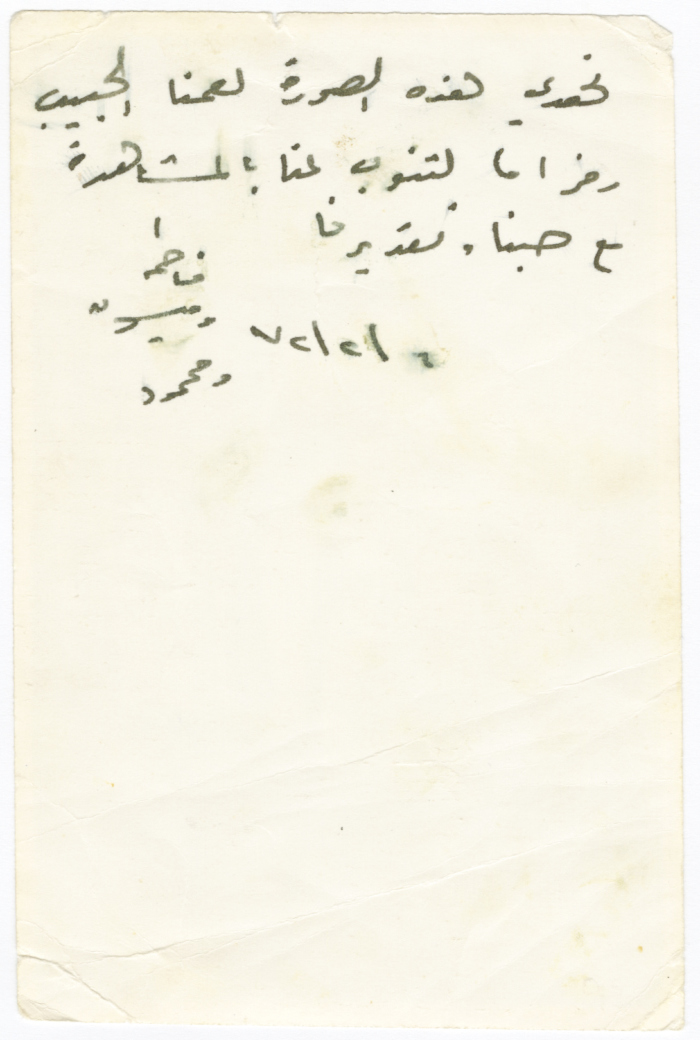 نهدي هذه الصورة لعمنا الحبيب
لتنوب عنا بالمشاهدة
مع حبنا وتقديرنا
فاطمة
وميسون
ومحمود
٧٢/٢/